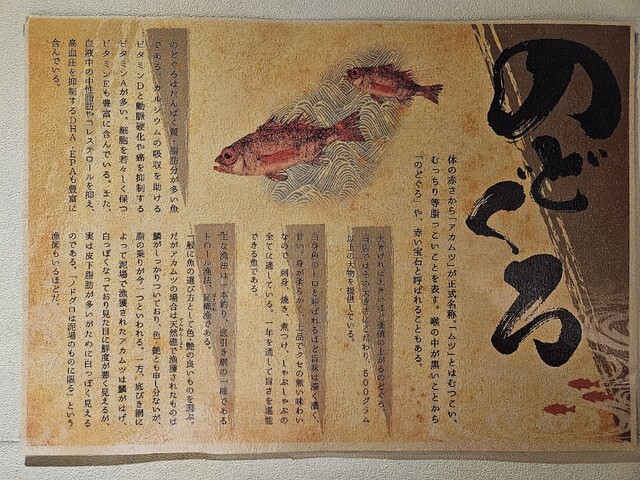 のどぐろ
体の赤さから「アカムツ」が正式名称。「ムツ」とはむつこい、
むっちり等脂っこいことを表す。喉の中が黒いことから
「のどぐろ」や、赤い宝石と呼ばれることもある。
大きければ大きいほど価値の上がるのどぐろ。
当店ではその大きさにこだわり、500グラム
以上の大物を提供している。
白身魚のトロと呼ばれるほど旨味は深く濃く、
甘い。身が柔らかく、上品でクセの無い味わい
なので、刺身、焼き、煮つけ、しゃぶしゃぶの
全てに適している。一年を通して旨さを堪能
できる魚である。
主な漁法は一本釣り、底引き網の一種である
トロール漁法、延縄漁である。
一般に魚の選び方として色、艶の良いものを選ぶ。
だがアカムツの場合は天然礁で漁獲されたものは
鱗がしっかりついており、色、艶とも申し分ないが、
脂の乗りが今一つといわれる。一方、底びき網に
よって泥場で漁獲されたアカムツは鱗がはげ、
白っぽくなっており見た目に鮮度が悪く見えるが、
実は皮下脂肪が多いがために白っぽく見える
のである。「ノドグロは泥場のものに限る」という
漁師もいるほどだ。
のどぐろはたんぱく質・脂肪分が多い魚
である。カルシウムの吸収を助ける
ビタミンDと動脈硬化や癌を抑制する
ビタミンAが多い。細胞を若々しく保つ
ビタミンEも豊富に含んでいる。また、
血液中の中性脂肪やコレステロールを抑え、
高血圧を抑制するDHA・EPAも豊富に
含んでいる。